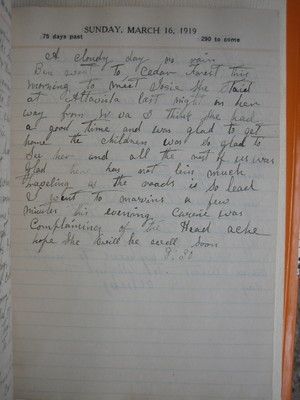 SUNDAY, MARCH 16, 1919
75 days past 290 to come
A cloudy day no rain
Ben went to Cedar Forest this
morning to meet Josie She staid
at Altavista last night on her
way from W. va I think she had
a good time and was glad to get
home the children was so glad to
See her and all the rest of us was
glad has not bein much
traveling as the roads is so bead
I went to marvins a few
minutes this evening Carrie was
Complaining of the Head ache
hope She will be well Soon